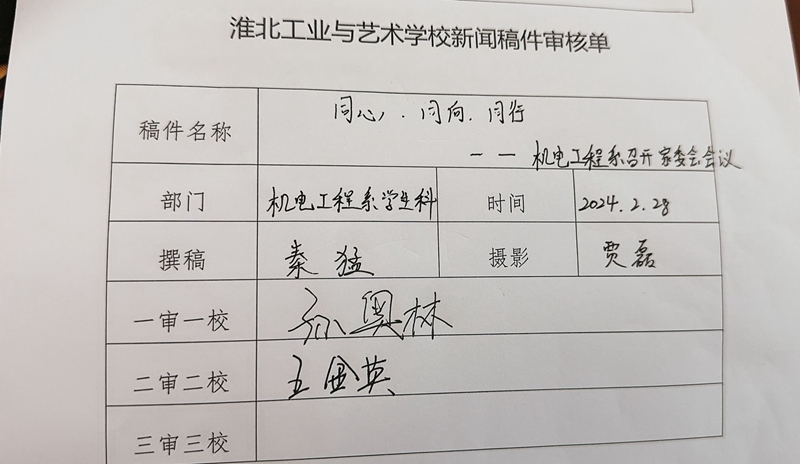 淮北工业与艺术学校新闻稿件审核单
稿件名称
同心、同向、同行
——机电工程系召开家委会会议
部门 机电工程系学生科 时间 2024.2.28
撰稿 秦猛 摄影 贾磊
一审一校 孙奥林
二审二校 英
三审三校